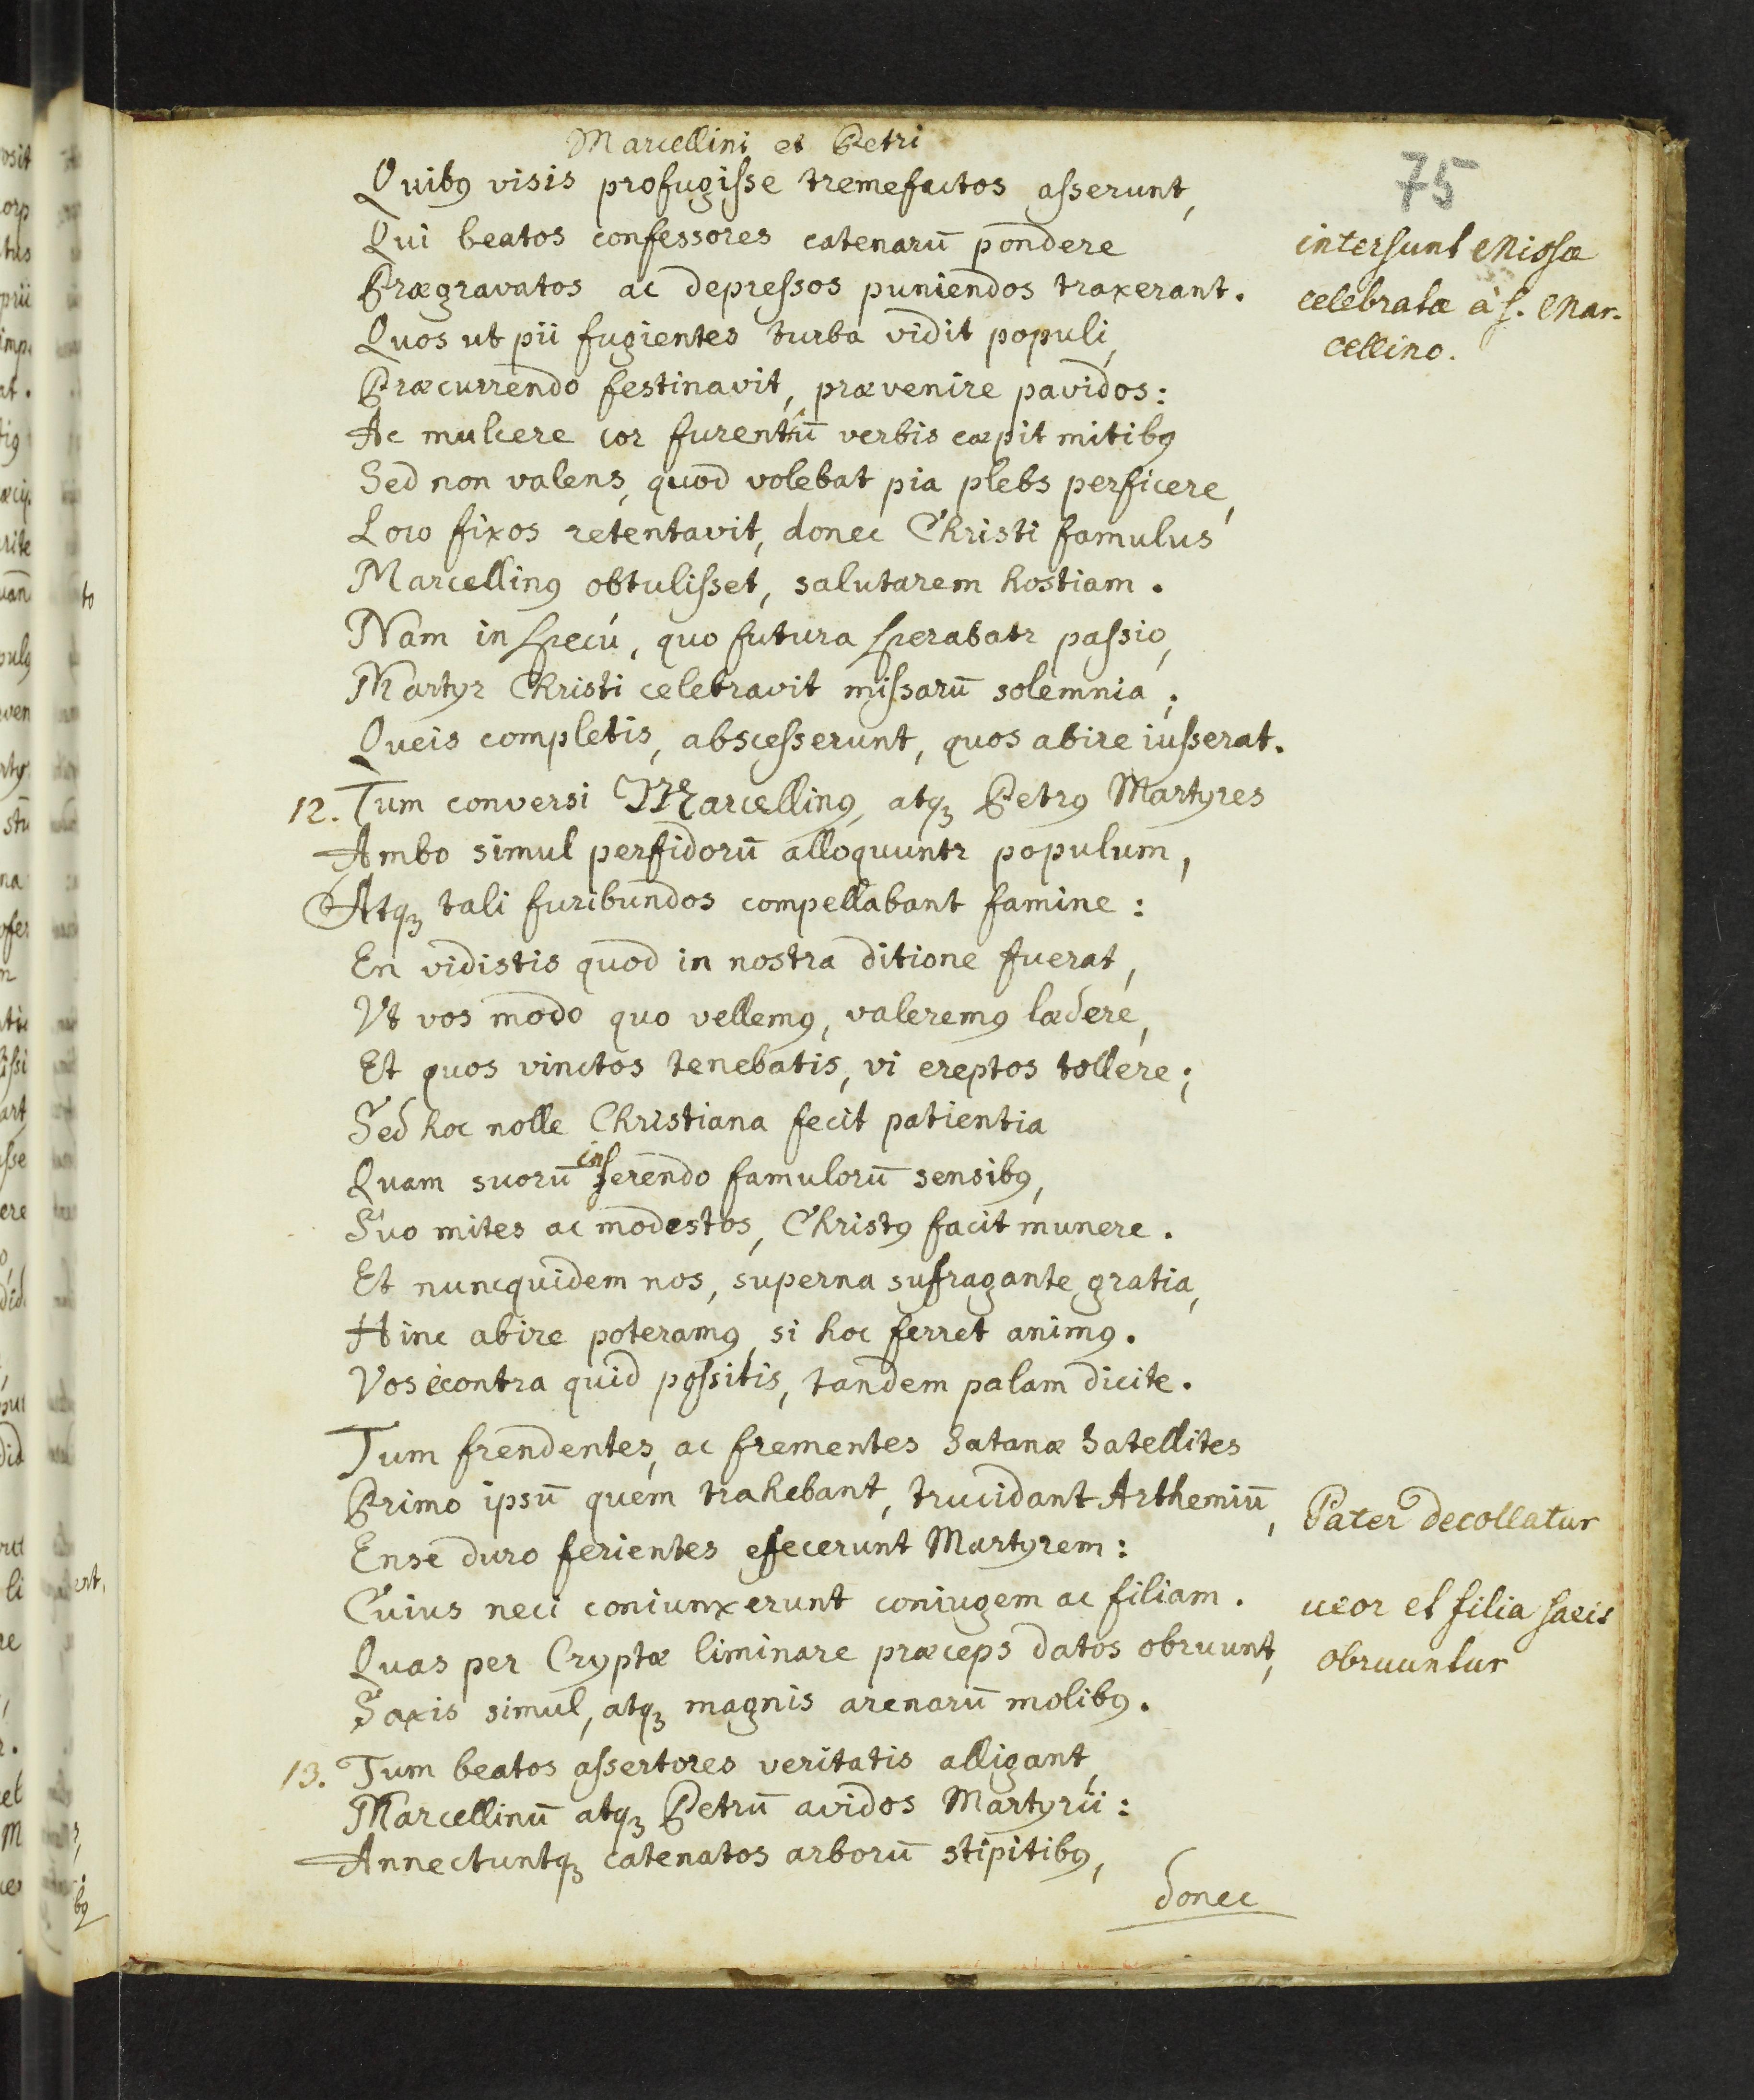 Marcellini et Petri
75
Quibꝰ visis profugiſse tremefactos aſserunt,
Qui beatos confessores catenarū pondere
Prægravatos ac depreſsos puniendos traxerant.
Quos ut pii fugientes turba vidit populi,
Præcurrendo festinavit, prævenire pavidos:
Ac mulcere cor furentiū verbis cæpit mitibꝰ
Sed non valens, quod volebat pia plebs perficere,
Loco fixos retentavit, donec Christi famulus
Marcellinꝰ obtuliſset, salutarem hostiam.
Nam in specú, quo futura sperabatr paſsio,
Martyr Christi celebravit miſsarū solemnia;
Queis completis, absceſserunt, quos abire iuſserat.
intersunt Missæ
celebratæ à s. Mar.
cellino.
12. Tum conversi Marcellinꝰ, atqꝫ Petrꝰ Martyres
Ambo simul perfidorū alloquuntr populum,
Atqꝫ tali furibundos compellabant famine:
En vidistis quod in nostra ditione fuerat,
Vt vos modo quo vellemꝰ, valeremꝰ lædere,
Et quos vinctos tenebatis, vi ereptos tollere;
Sed hoc nolle Christiana fecit patientia
Quam suorū inserendo famulorū sensibꝰ,
Suo mites ac modestos, Christꝰ facit munere.
Et nuncquidem nos, superna sufragante gratia,
Hinc abire poteramꝰ, si hoc ferret animꝰ.
Vos ècontra quid poſsitis, tandem palam dicite.
Tum frendentes, ac frementes Satanæ Satellites
Primo ipsū quem trahebant, trucidant Arthemiū,
Ense duro ferientes efecerunt Martyrem:
Cuius neci coniunxerunt coniugem ac filiam.
Quas per Cryptæ liminare præceps datos obruunt,
Saxis simul, atqꝫ magnis arenarū molibꝰ.
Pater decollatur
uxor et filia saxis
obruuntur
13. Tum beatos aſsertores veritatis alligant,
Marcellinū atqꝫ Petrū avidos Martyrii:
Annectuntqꝫ catenatos arborū stipitibꝰ,
donec